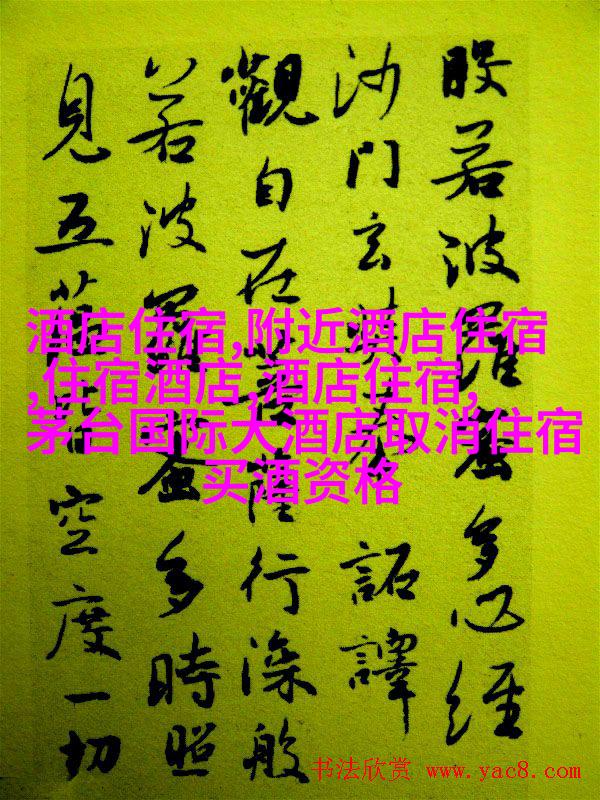 般若波羅蜜多心經
沙門玄奘奉 詔譯
觀自在菩薩行深般
若波羅蜜多時照
見五蘊皆空度一切
酒店住宿,附近酒店住宿
,住宿酒店,酒店住宿,
茅台国际大酒店取消住宿
买酒资格
书法欣赏 www.yac8.com